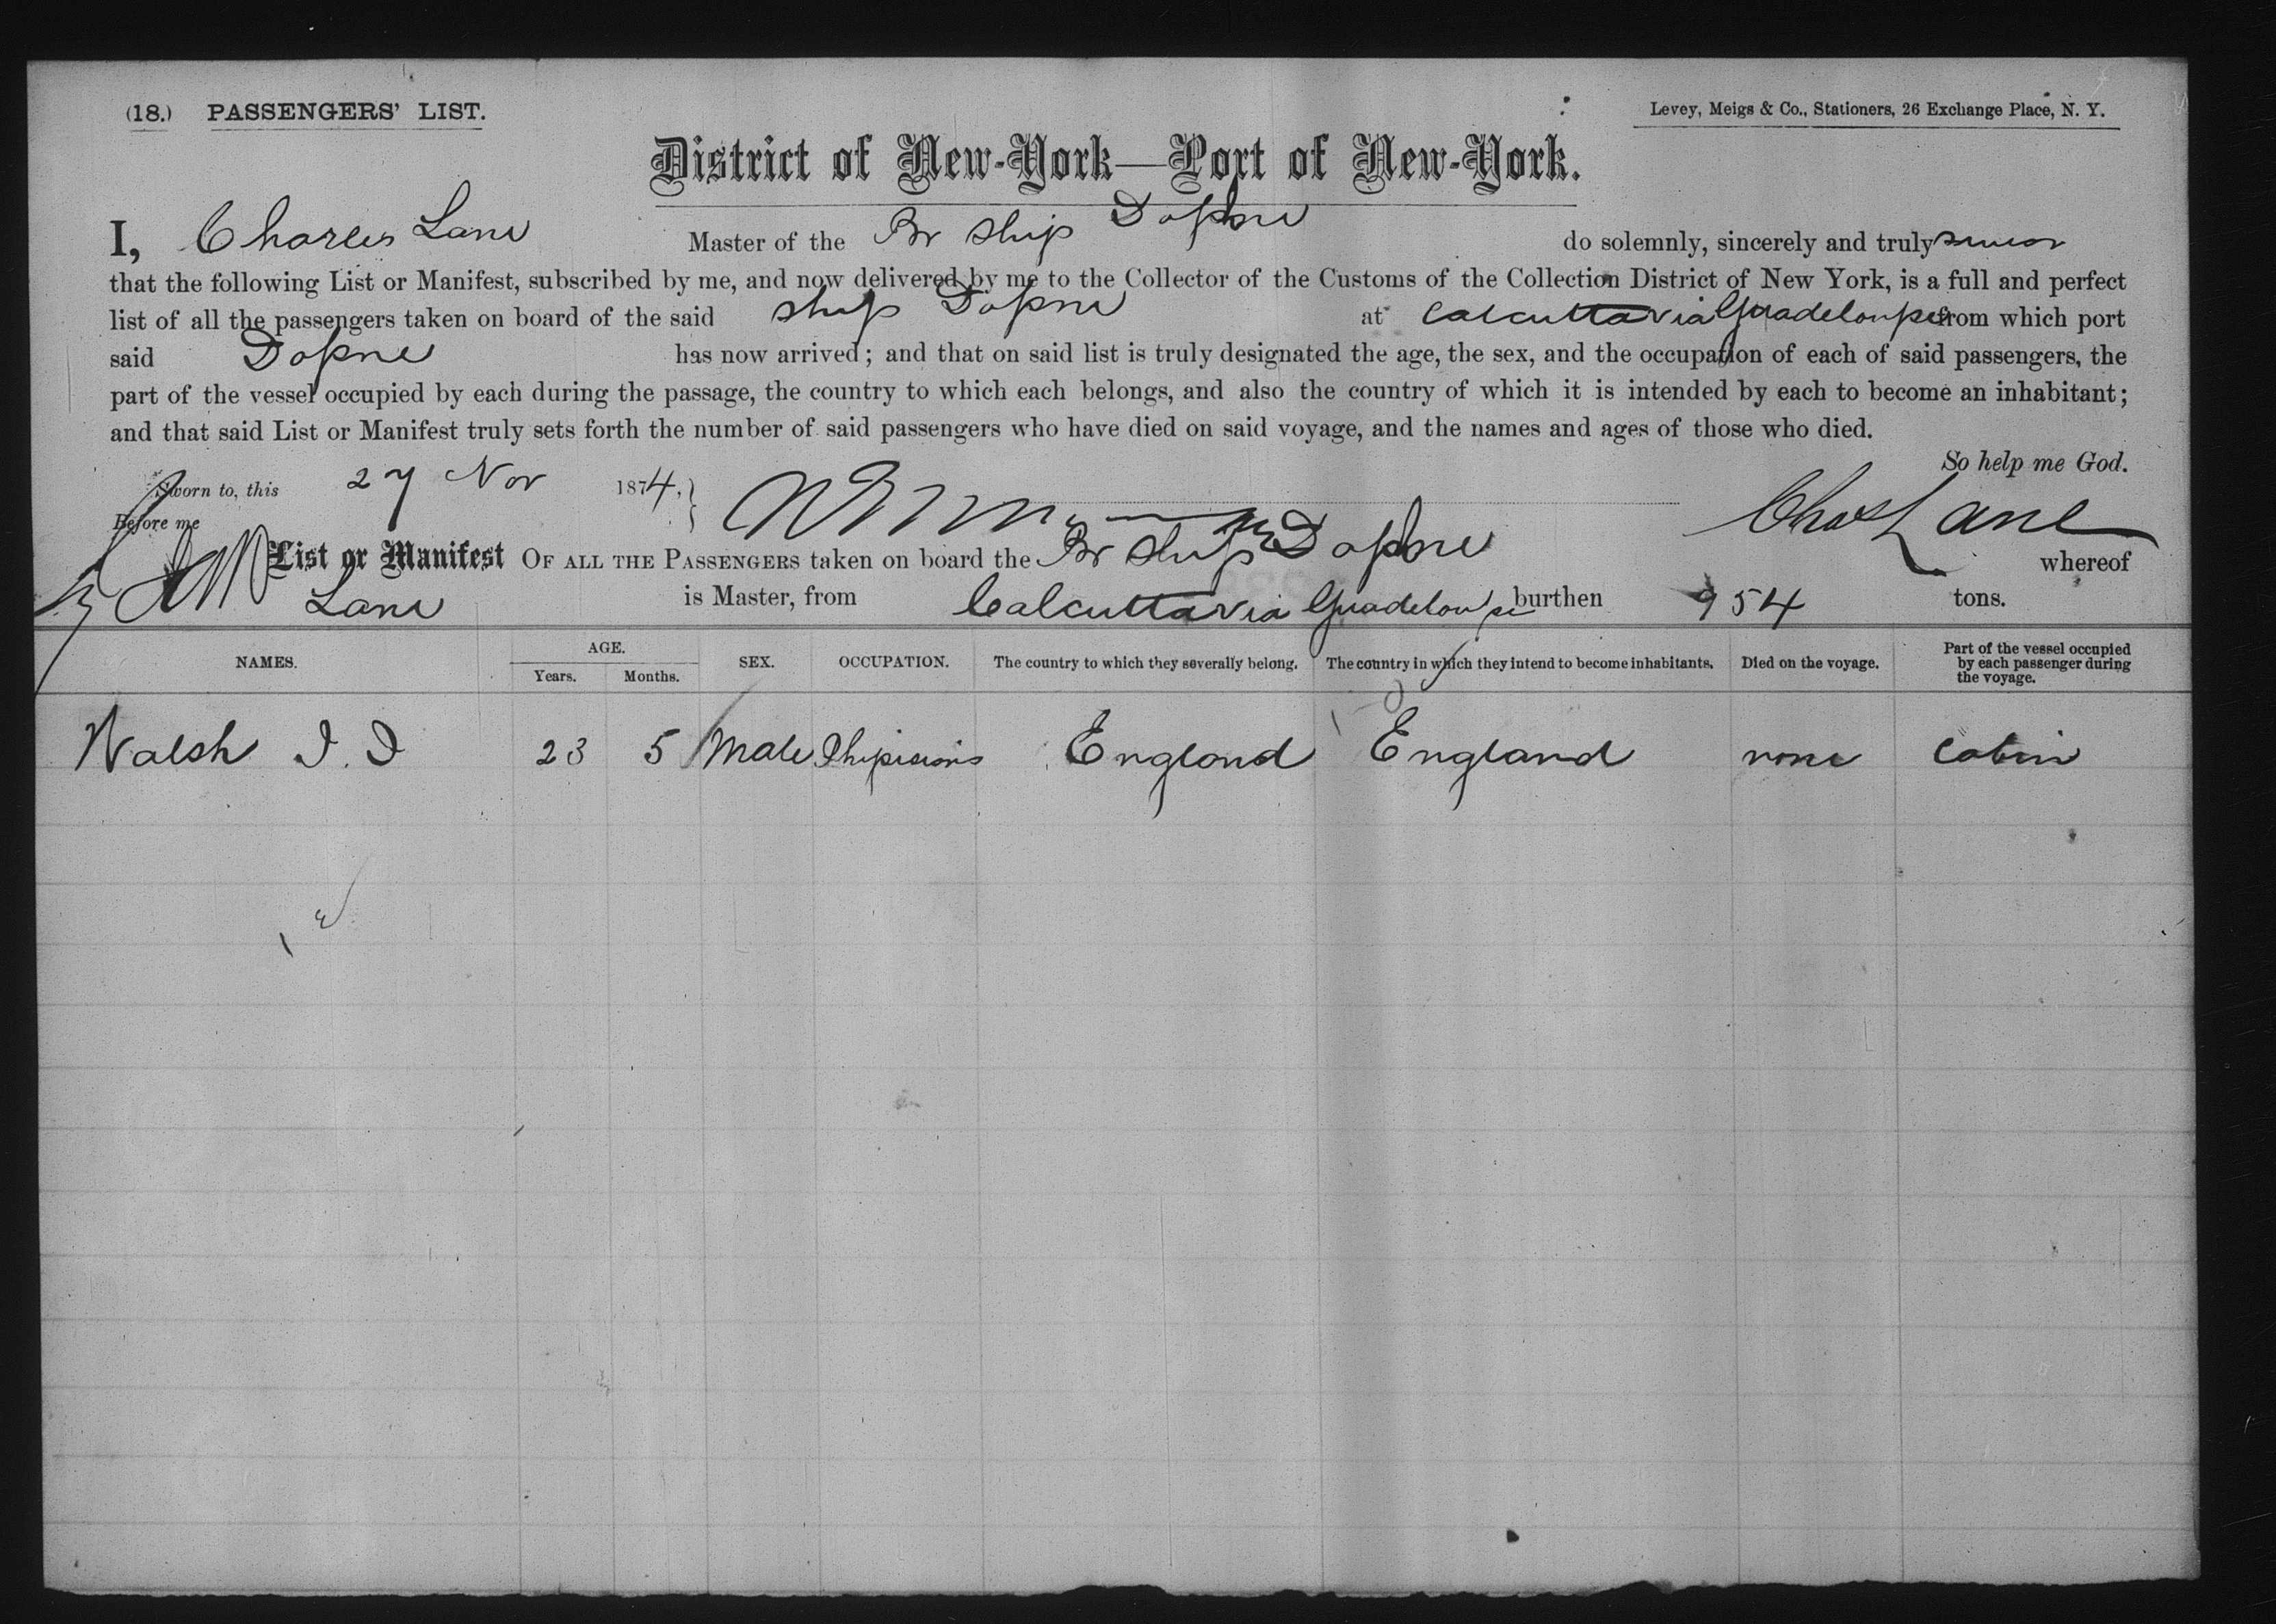 (18.) PASSENGERS' LIST.
Levey, Meigs & Co., Stationers, 26 Exchange Place, N. Y.
District of New-York—Port of New-York.
I, Charles Lane Master of the Br Ship Dapne do solemnly, sincerely and truly swear
that the following List or Manifest, subscribed by me, and now delivered by me to the Collector of the Customs of the Collection District of New York, is a full and perfect
list of all the passengers taken on board of the said Ship Dapne at Calcutta via Guadeloupe from which port
said Dapne has now arrived; and that on said list is truly designated the age, the sex, and the occupation of each of said passengers, the
part of the vessel occupied by each during the passage, the country to which each belongs, and also the country of which it is intended by each to become an inhabitant;
and that said List or Manifest truly sets forth the number of said passengers who have died on said voyage, and the names and ages of those who died.
So help me God.
Sworn to, this 27 Nov 1874,
Chas Lane
Before me
List or Manifest OF ALL THE PASSENGERS taken on board the Br Ship Dapne whereof
Lane is Master, from Calcutta via Guadeloupe burthen 954 tons.
NAMES. AGE. Years. Months. SEX. OCCUPATION. The country to which they severally belong. The country in which they intend to become inhabitants. Died on the voyage. Part of the vessel occupied by each passenger during the voyage.
Walsh J. J 23 5 Male England England none Cabin